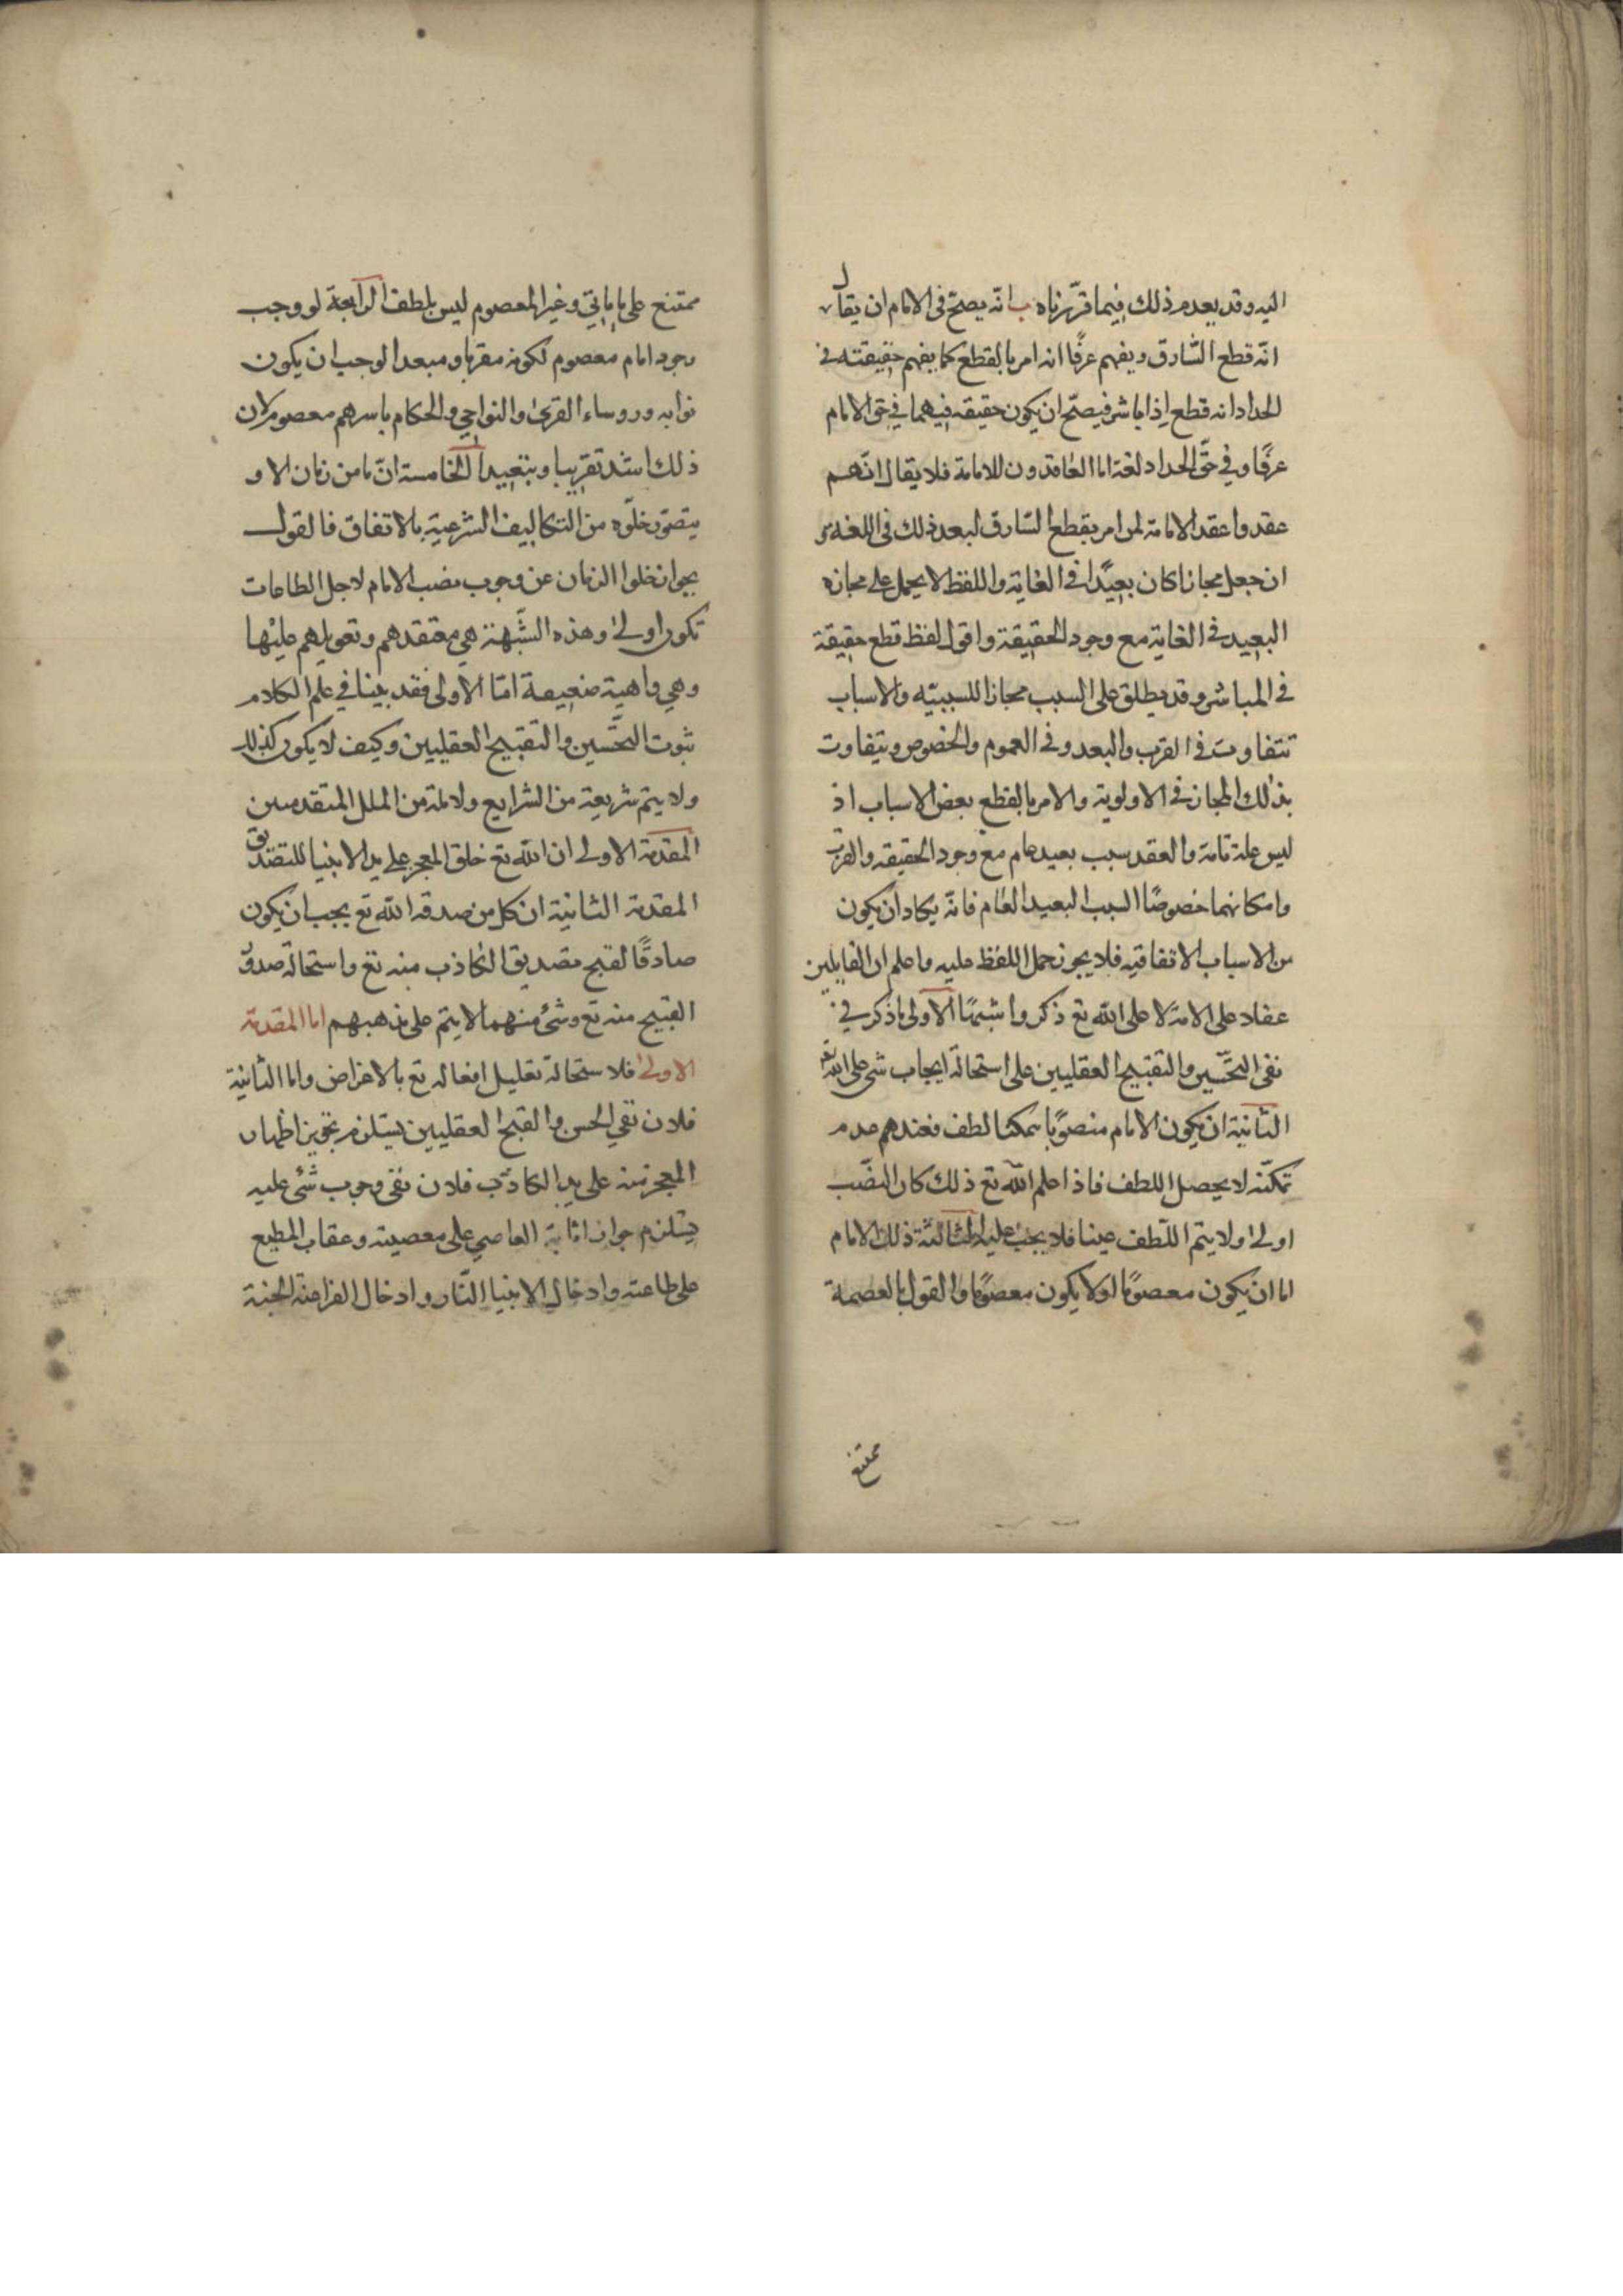 اليه وقد يعدم ذلك فيما قررناه ب انه يصح في الامام ان يقال
انّه قطع السّارق ويفهم عرفًا انه امر بالقطع كما يفهم حقيقته في
الحداد انه قطع اذا باشر فيصحّ ان يكون حقيقه فيهما في حق الامام
عرفًا وفي حقّ الحداد لغة اما العاقدون للامامة فلا يقال انّهم
عقدوا عقد الامامة لمن امر بقطع السّارق لبعد ذلك في اللغه
ان جعل مجازا كان بعيدًا في الغاية واللفظ لا يحمل على مجازه
البعيد في الغاية مع وجود الحقيقة واقول لفظ قطع حقيقة
في المباشر وقد يطلق على السبب مجازا للسببيّه والاسباب
تتفاوت في القرب والبعد وفي العموم والخصوص ويتفاوت
بذلك المجاز في الاولوية والامر بالقطع بعض الاسباب اذ
ليس علة تامة والعقد سبب بعيد عام مع وجود الحقيقه والقرب
وامكانهما خصوصًا السبب البعيد العام فانّه يكاد ان يكون
من الاسباب الاتفاقيه فلا يجوز حمل اللفظ عليه واعلم ان القايلين
عقاد على الامة لا على الله تع ذكروا شبهًا الاولى ما ذكر في
نفي التحسين والتقبيح العقليين على استحالة ايجاب شي على الله تع
الثانية ان يكون الامام منصوبًا متمكنا لطف فعندهم عدم
تمكنّه لا يحصل اللطف فاذا علم الله تع ذلك كان النصّب
اولى اولا يتم اللّطف عينا فلا يجب عليه الثالثة ذلك الامام
اما ان يكون معصومًا او لا يكون معصومًا والقول بالعصمة
ممتنع
ممتنع على ما ياتي وغير المعصوم ليس بلطف الرابعة لو وجب
وجود امام معصوم لكونه مقربا ومبعدا لوجب ان يكون
نوابه وروساء القرى والنواحي والحكام باسرهم معصومر لان
ذلك اشد تقريبا وتبعيدا الخامسة انّ ما من زمان الا و
يتصوّر خلوّه من التكاليف الشرعيّه بالاتفاق فالقول
بجواز خلوا الزمان عن وجوب نصب الامام لاجل الطاعات
تكون اولى وهذه الشّبهة هي معتقدهم وتعويلهم عليها
وهي واهية ضعيفة امّا الاولى فقد بينا في علم الكلام
ثبوت التحّسين والتقبيح العقليين وكيف لا يكون كذلك
ولا يتم شريعة من الشرايع ولا ملة من الملل المتقدمين
المقدمة الاولى ان الله تع خلق المعجز على يد الانبيا للتصديق
المقدمة الثانية ان كل من صدقه الله تع يجب ان يكون
صادقًا لقبح تصديق الكاذب منه تع واستحالة صدور
القبيح منه تع وشئ منهما لا يتم على مذهبهم اما المقدمة
الاولى فلاستحالة تعليل افعاله تع بالاغراض واما الثانية
فلان نفي الحسن والقبح العقليين يستلزم تجويز اظهار
المعجز منه على يد الكاذب فلان نفي وجوب شئ عليه
يستلزم جواز اثابة العاصي على معصيته وعقاب المطيع
على طاعته وادخال الانبيا النّار وادخال الفراعنة الجنة